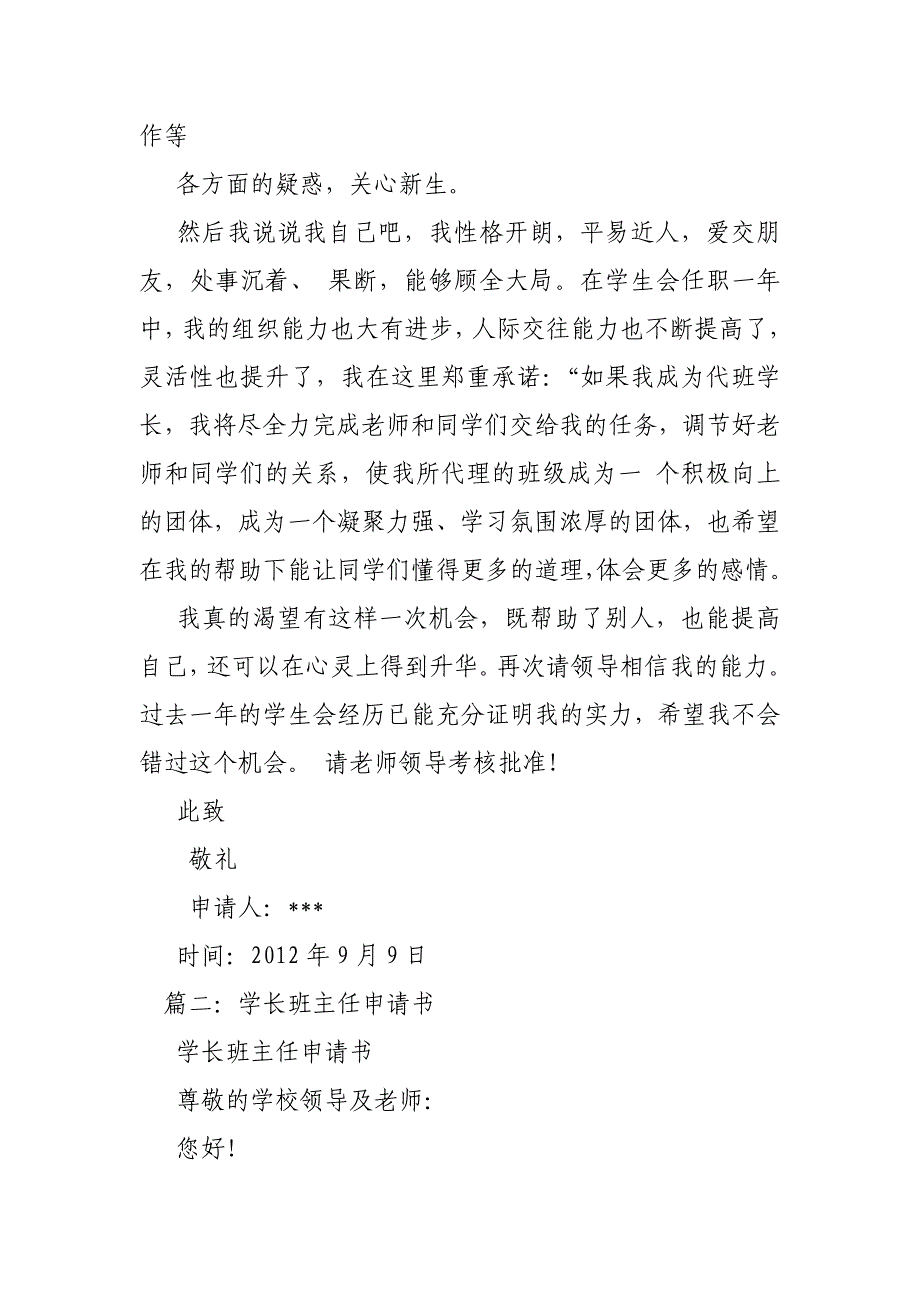 作等
各方面的疑惑，关心新生。
然后我说说我自己吧，我性格开朗，平易近人，爱交朋
友，处事沉着、 果断，能够顾全大局。在学生会任职一年
中，我的组织能力也大有进步，人际交往能力也不断提高了，
灵活性也提升了，我在这里郑重承诺：“如果我成为代班学
长，我将尽全力完成老师和同学们交给我的任务，调节好老
师和同学们的关系，使我所代理的班级成为一 个积极向上
的团体，成为一个凝聚力强、学习氛围浓厚的团体，也希望
在我的帮助下能让同学们懂得更多的道理，体会更多的感情。
我真的渴望有这样一次机会，既帮助了别人，也能提高
自己，还可以在心灵上得到升华。再次请领导相信我的能力。
过去一年的学生会经历已能充分证明我的实力，希望我不会
错过这个机会。 请老师领导考核批准！
此致
敬礼
申请人：***
时间：2012 年 9 月 9 日
篇二：学长班主任申请书
学长班主任申请书
尊敬的学校领导及老师：
您好！